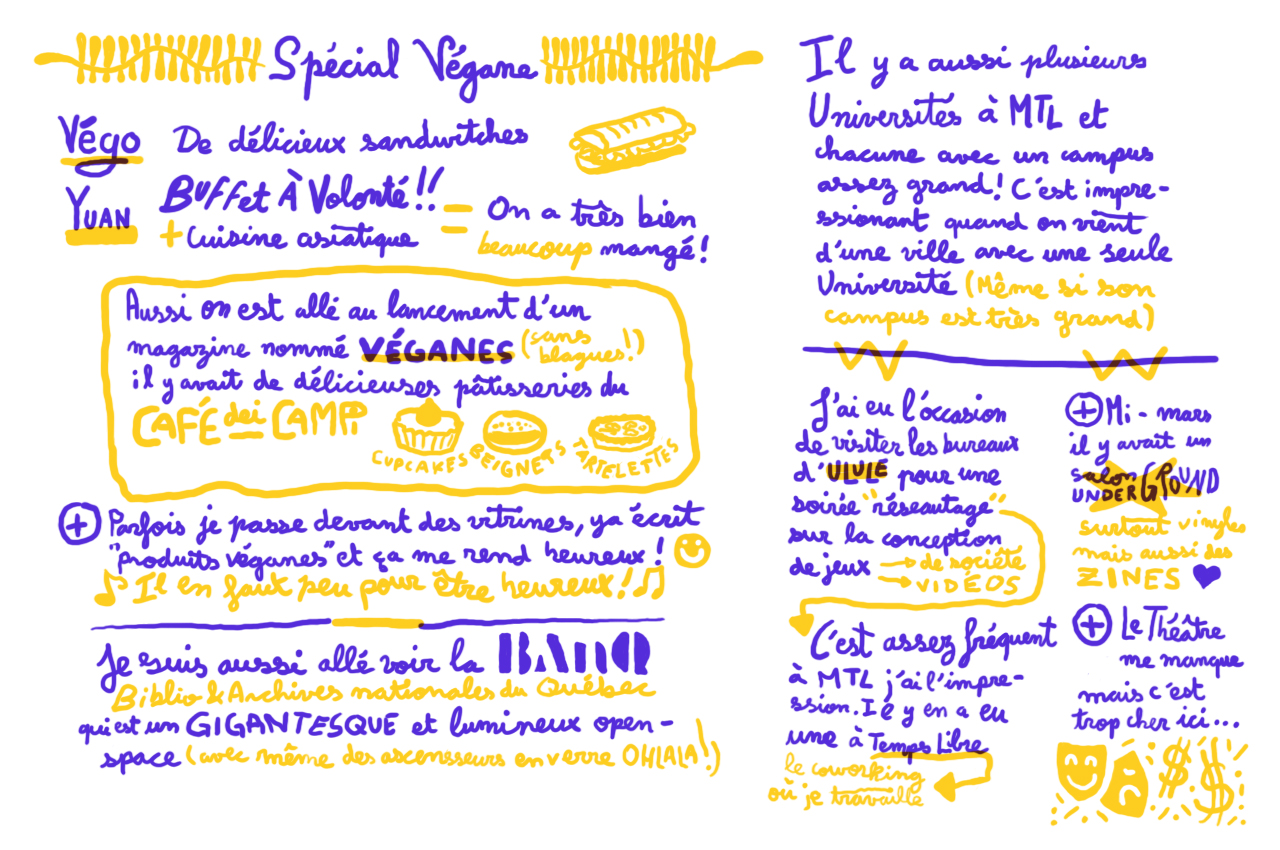 Spécial Végane
Végo De délicieux sandwitches
Yuan Buffet À Volonté!! = On a très bien
+ Cuisine asiatique beaucoup mangé!
Aussi on est allé au lancement d'un
magazine nommé VÉGANES (sans blagues!)
il y avait de délicieuses pâtisseries du
CAFÉ dei CAMPI
CUPCAKES BEIGNETS TARTELETTES
+ Parfois je passe devant des vitrines, ya écrit
"produits véganes" et ça me rend heureux!
♪ Il en faut peu pour être heureux! ♫
Je suis aussi allé voir la BAnQ
Biblio & Archives nationales du Québec
qui est un GIGANTESQUE et lumineux open-
space (avec même des ascensseurs en verre OHLALA!)
Il y a aussi plusieurs
Universités à MTL et
chacune avec un campus
assez grand! C'est impre-
ssionant quand on vient
d'une ville avec une seule
Université (Même si son
campus est très grand)
J'ai eu l'occasion
de visiter les bureaux
d'ULULE pour une
soirée "réseautage"
sur la conception
de jeux → de société
→ VIDÉOS
C'est assez fréquent
à MTL j'ai l'impre-
ssion. Il y en a eu
une à Temps Libre
le coworking
où je travaille
+ Mi-mars
il y avait un
salon
UNDERGROUND
surtout vinyles
mais aussi des
ZINES ♥
+ Le Théâtre
me manque
mais c'est
trop cher ici...
$ $